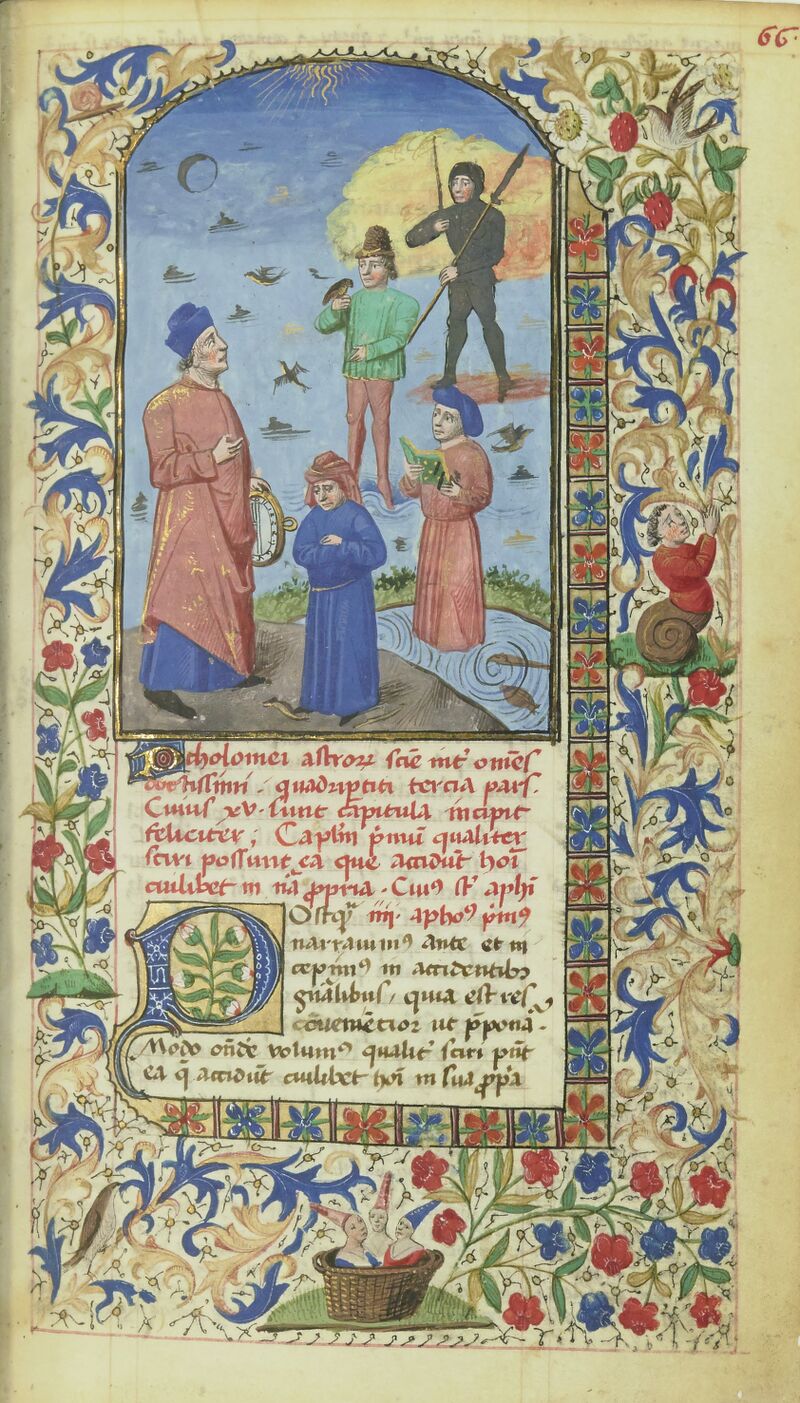 66
Ptholomei astrorꝝ scīe int' om̄es
doctissimi . quadriꝑtiti tercia pars .
Cuius xv . sunt capitula incipit
feliciter ; Caplm̄ p̄mū qualiter
sciri possunt ea que accidūt hoī
cuilibet in nā ꝓpria . Cuiꝰ st̄ aphī
Ostqꝫ iiii . aphoꝰ p̄miꝰ
narrauimꝰ ante et in
cepimꝰ in accidentibꝫ
gn̄alibus , quia est res
cōueniētior ut p̄ponā .
Modo on̄de volumꝰ qualit' sciri pn̄t
ea q̄ accidūt cuilibet hoī in sua ꝓpa